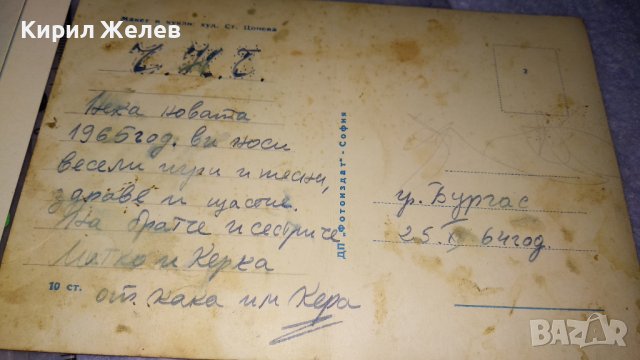 Кирил Желев
Макет и кукли: худ. Ст. Цонева
Ч.Н.Г.
Нека новата
1965 год. ви носи
весели игри и песни,
здраве и щастие.
На братче и сестриче
Митко и Керка
от кака им Кера
10 ст.
ДП „Фотоиздат" - София
гр. Бургас
25. 64 год.
bazar.bg